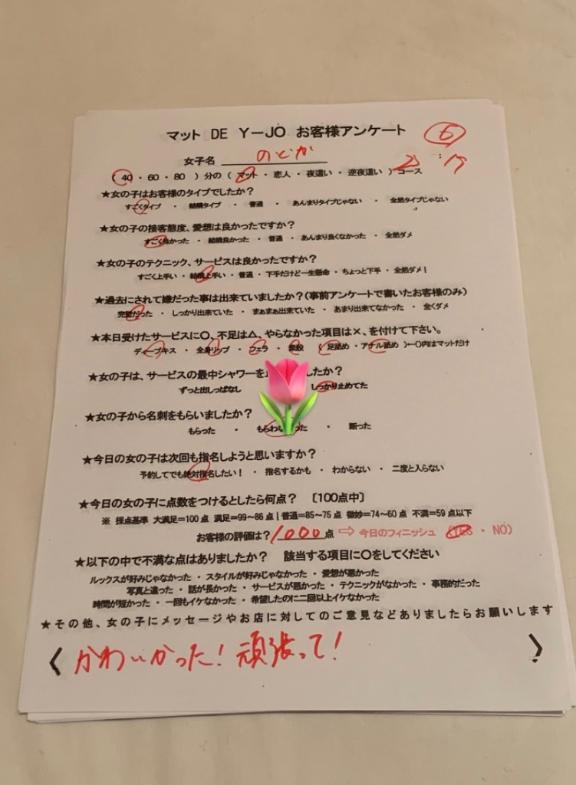 マット DE Y-JO お客様アンケート ⑥
女子名 のどか
( 40・60・80 )分の( マット・恋人・夜這い・逆夜這い )コース
★女の子はお客様のタイプでしたか?
すごくタイプ ・ 結構タイプ ・ 普通 ・ あんまりタイプじゃない ・ 全然タイプじゃない
★女の子の接客態度、愛想は良かったですか?
すごく良かった ・ 結構良かった ・ 普通 ・ あんまり良くなかった ・ 全然ダメ
★女の子のテクニック、サービスは良かったですか?
すごく上手い ・ 結構上手い ・ 普通 ・ 下手だけど一生懸命 ・ ちょっと下手 ・ 全然ダメ!
★過去にされて嫌だった事は出来ていましたか?(事前アンケートで書いたお客様のみ)
完璧だった ・ しっかり出来ていた ・ まぁまぁ出来ていた ・ あまり出来てなかった ・ 全くダメ
★本日受けたサービスに〇、不足は△、やらなかった項目は×、を付けて下さい。
ディープキス ・ 全身リップ ・ フェラ ・ ( 足舐め ・ アナル舐め )←()内はマットだけ
★女の子は、サービスの最中シャワーを ましたか?
ずっと出しっぱなし しっかり止めてた
★女の子から名刺をもらいましたか?
もらった ・ もらわなかった ・ 断った
★今日の女の子は次回も指名しようと思いますか?
予約してでも絶対指名したい! ・ 指名するかも ・ わからない ・ 二度と入らない
★今日の女の子に点数をつけるとしたら何点? [100点中]
※ 採点基準 大満足=100点 満足=99~86点 | 普通=85~75点 微妙=74~60点 不満=59点以下
お客様の評価は? 1000 点 ⇨ 今日のフィニッシュ (YES ・ NO)
★以下の中で不満な点はありましたか? 該当する項目に〇をしてください
ルックスが好みじゃなかった ・ スタイルが好みじゃなかった ・ 愛想が悪かった
写真と違った ・ 話が長かった ・ サービスが悪かった ・ テクニックがなかった ・ 事務的だった
時間が短かった ・ 一回もイケなかった ・ 希望したのに二回以上イケなかった
★その他、女の子にメッセージやお店に対してのご意見などありましたらお願いします
〈 かわいかった! 頑張って! 〉